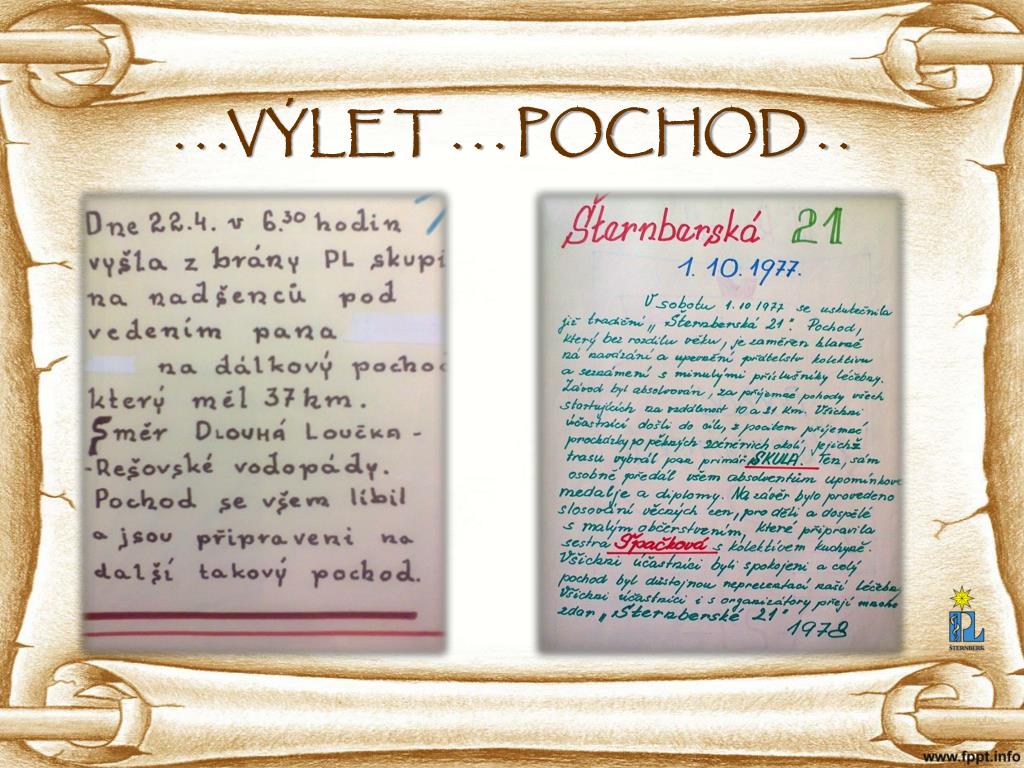 ...VÝLET...POCHOD..
Dne 22.4. v 6.30 hodin
vyšla z brány PL skupi
na nadšenců pod
vedením pana
na dálkový pochod
který měl 37km.
Směr Dlouhá Loučka -
-Rešovské vodopády.
Pochod se všem líbil
a jsou připraveni na
další takový pochod.
Šternberská 21
1.10.1977.
V sobotu 1.10.1977 se uskutečnila
již tradiční „Šternberská 21". Pochod,
který bez rozdílu věku, je zaměřen hlavně
na navázání a upevnění přátelství kolektivu
a seznámení s minulými příslušníky léčebny.
Závod byl absolvován, za příjemné pohody všech
startujících na vzdálenost 10 a 21 km. Všichni
účastníci došli do cíle, s pocitem příjemné
procházky po pěkných scénériích okolí, jejichž
trasu vybrál pan primář ŠKULA. Ten, sám
osobně předal všem absolventům upomínkové
medalje a diplomy. Na závěr bylo provedeno
slosování věcných cen, pro děti a dospělé
s malým občerstvením, které připravila
sestra Špačková s kolektivem kuchyně.
Všichni účastníci byli spokojeni a celý
pochod byl důstojnou reprezentací naší léčebny
Všichni účastníci i s organizátory přejí mnoho
zdar „Šternberské 21"
1978
PL
ŠTERNBERK
www.fppt.info